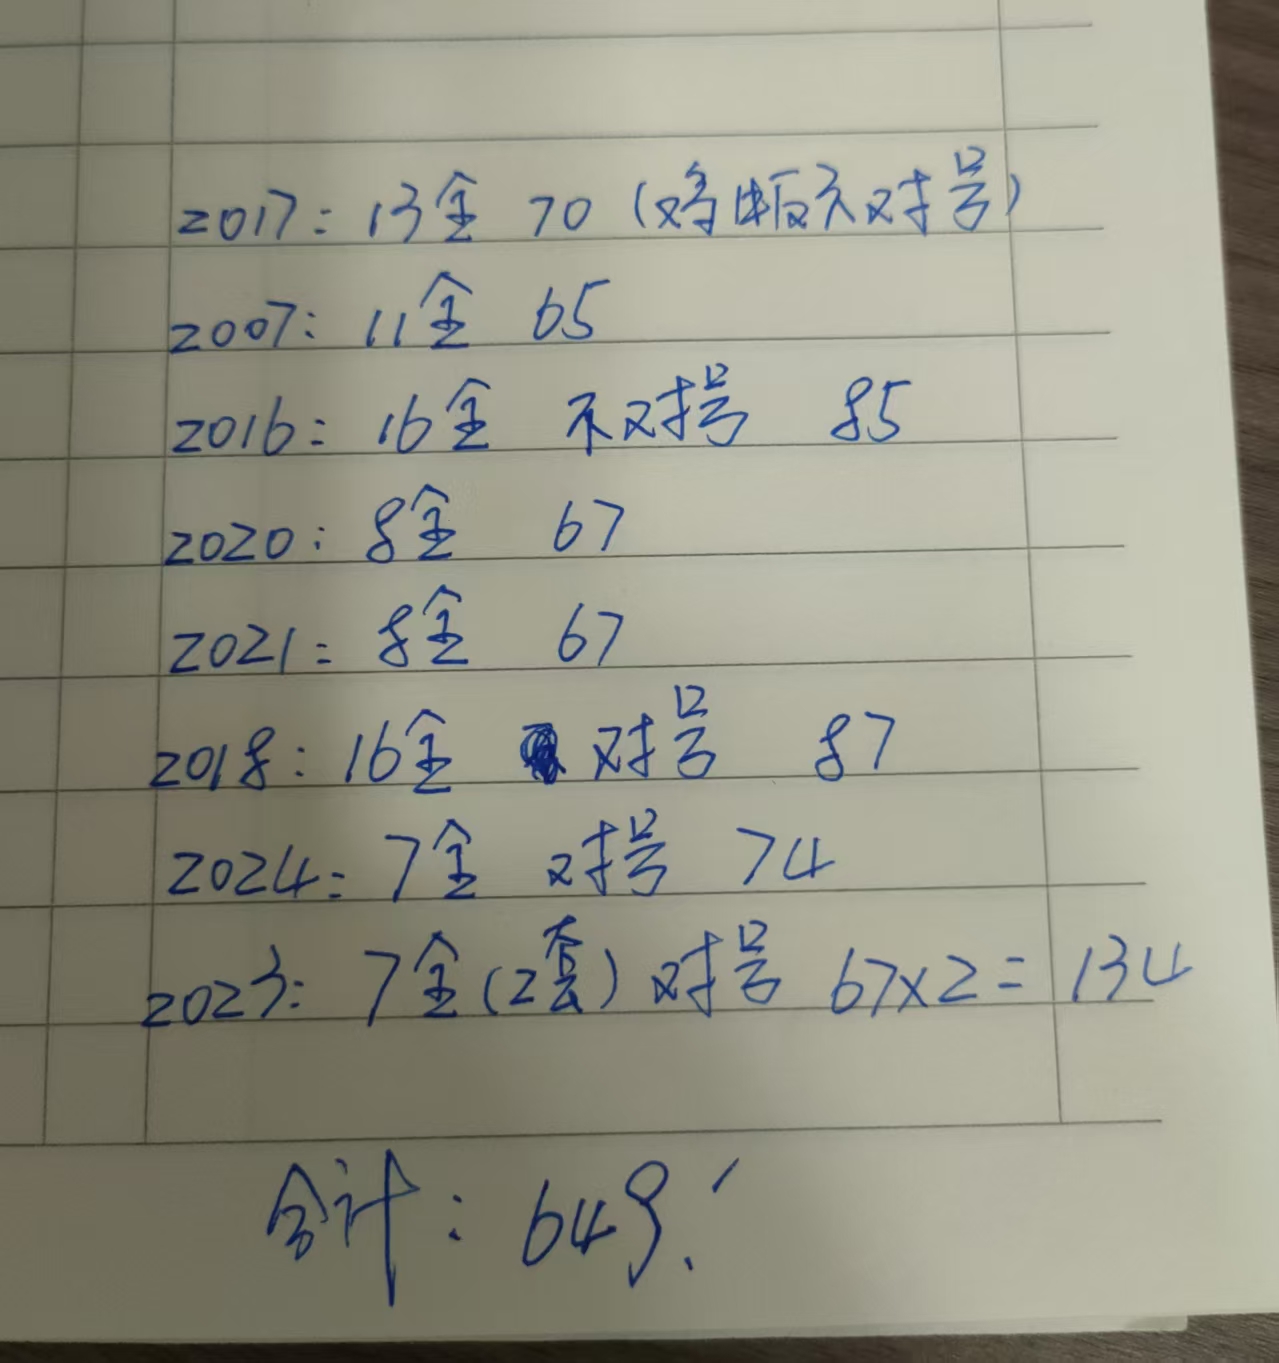 2017: 13全 70 (鸡版不对号)
2007: 11全 65
2016: 16全 不对号 85
2020: 8全 67
2021: 8全 67
2018: 16全 对号 87
2024: 7全 对号 74
2023: 7全(2套) 对号 67×2=134
合计: 649.